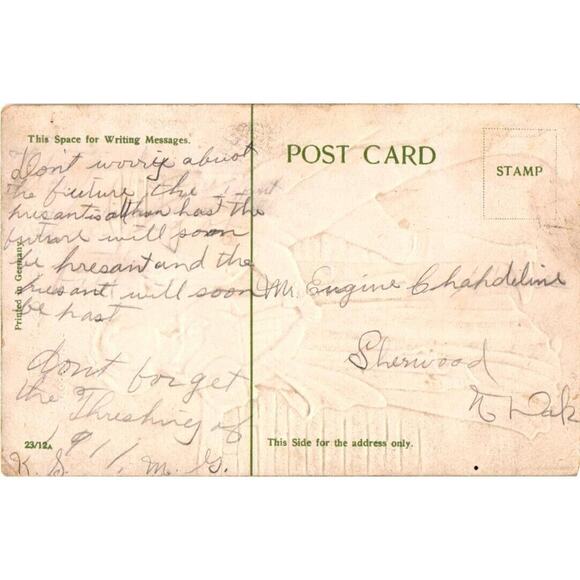 This Space for Writing Messages.
Don't worrie about
the fiuture the
presant is all han hast the
fiuture will soon
be hresant and the
hresant will soon
be hast
dont forget
the Threshing of
1911
K. S. M. G.
Printed in Germany
23/12A
POST CARD
STAMP
M. Eugine Chahdeline
Sherwood
N Dak
This Side for the address only.